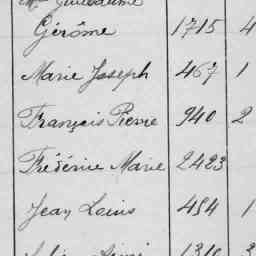 Mce Guillaume
Gérôme 1715 4
Marie Joseph 467 1
François Pierre 940 2
Frédéric Marie 2423
Jean Louis 484 1